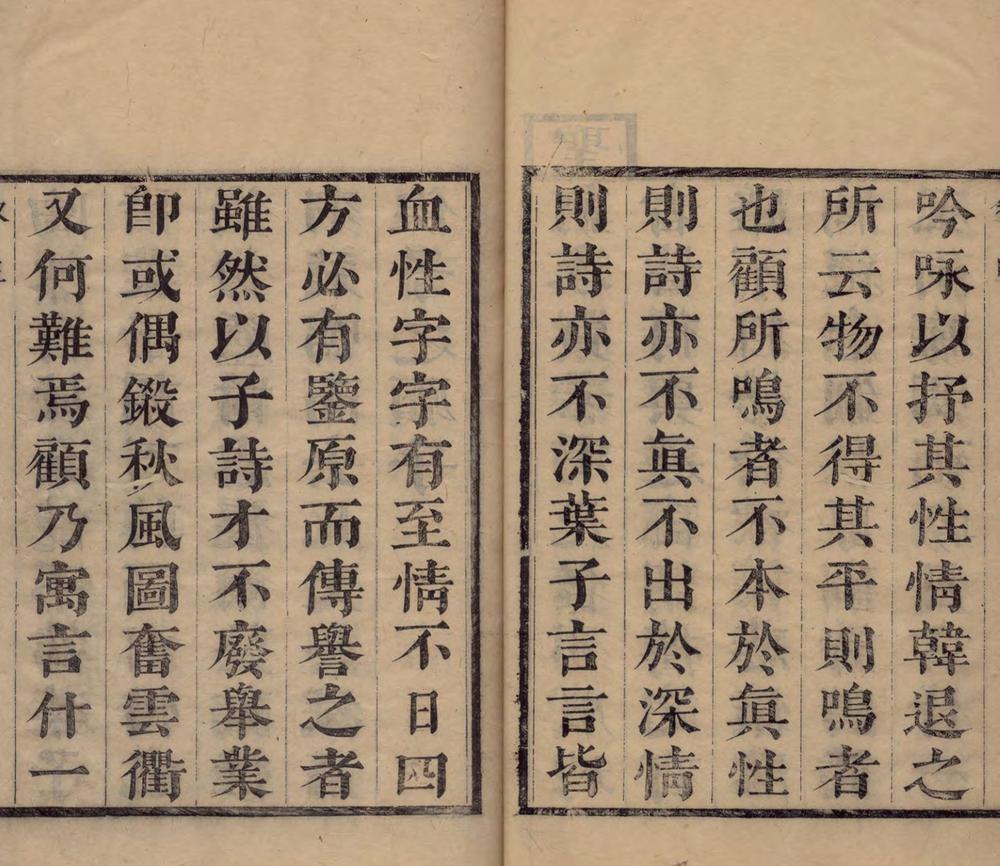 吟咏以抒其性情韓退之
所云物不得其平則鳴者
也顧所鳴者不本於眞性
則詩亦不眞不出於深情
則詩亦不深葉子言言皆
血性字字有至情不日四
方必有鑒原而傳譽之者
雖然以子詩才不廢舉業
卽或偶鍛秋風圖奮雲衢
又何難焉顧乃寓言什一